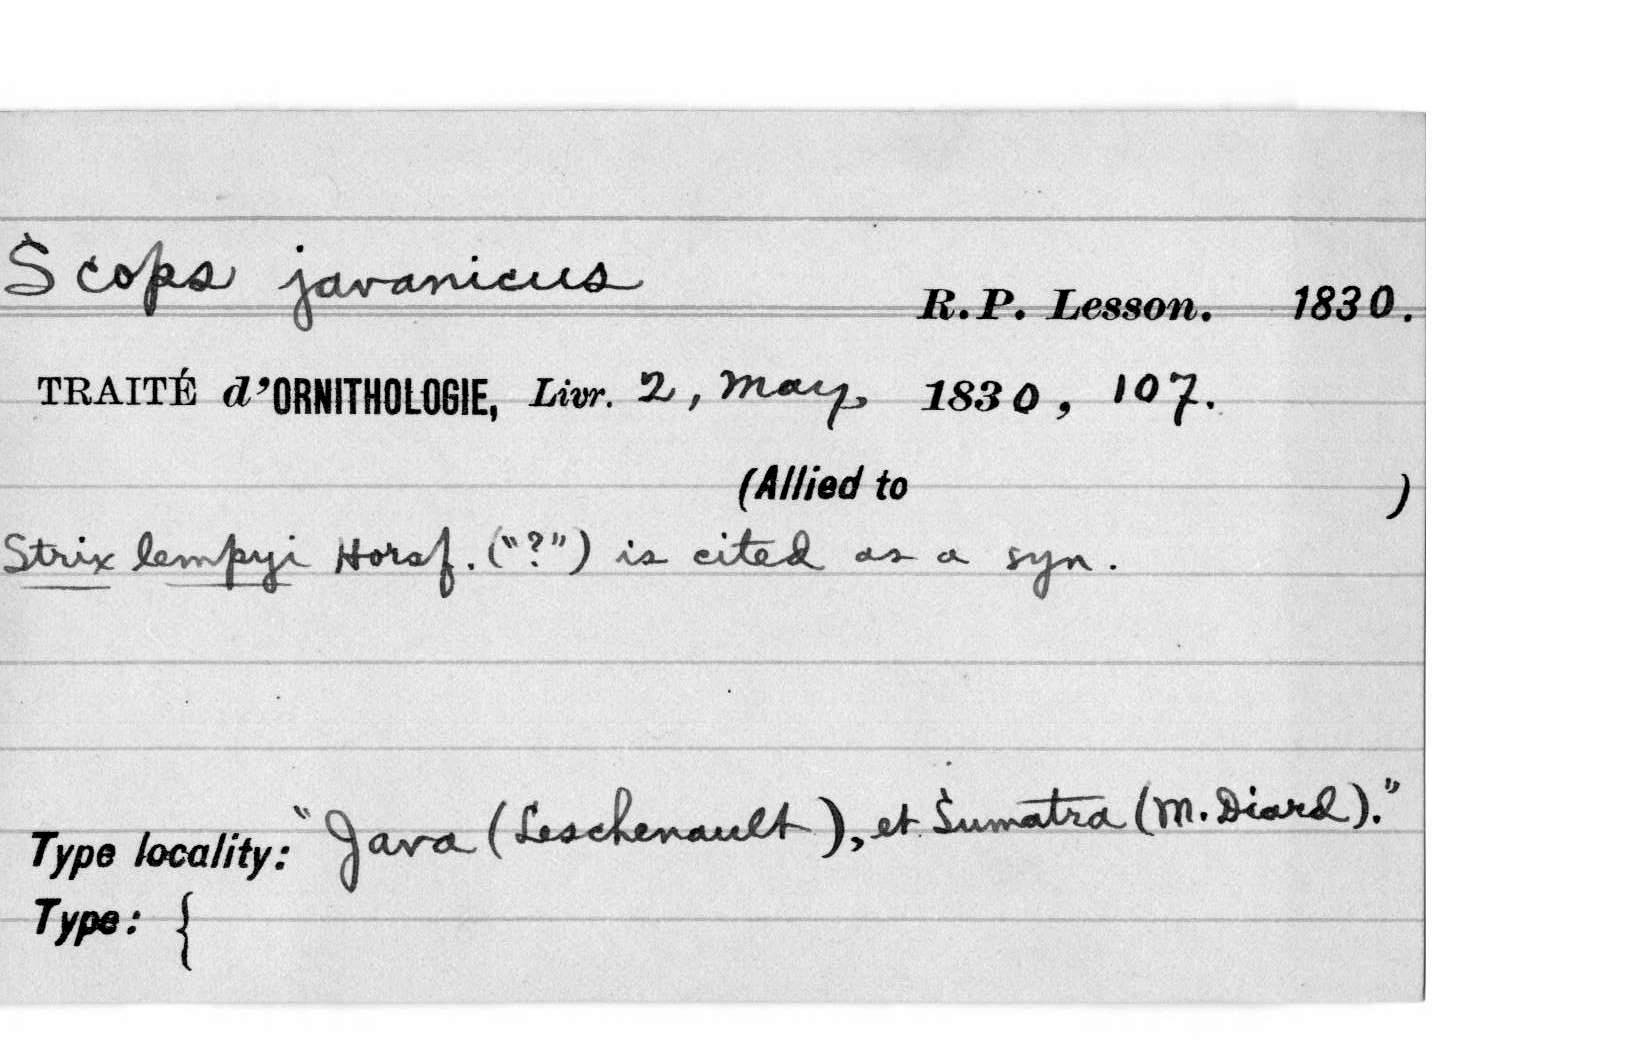 Scops javanicus
R.P. Lesson. 1830.
TRAITÉ d'ORNITHOLOGIE, Livr. 2, May, 1830, 107.
(Allied to )
Strix lempyi Horsf. ("?") is cited as a syn.
Type locality: "Java (Leschenault), et Sumatra (M. Diard)."
Type: {